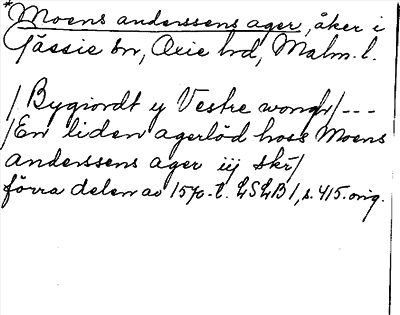 *Moens anderssens ager, åker i
Gässie sn, Oxie hd, Malm. l.
/Bygiordt y Vestre wongh/---
/En liden agerlöd hoss Moens
anderssens ager iij skr/
förra delen av 15%-t. LSLB1, s. 415. orig.